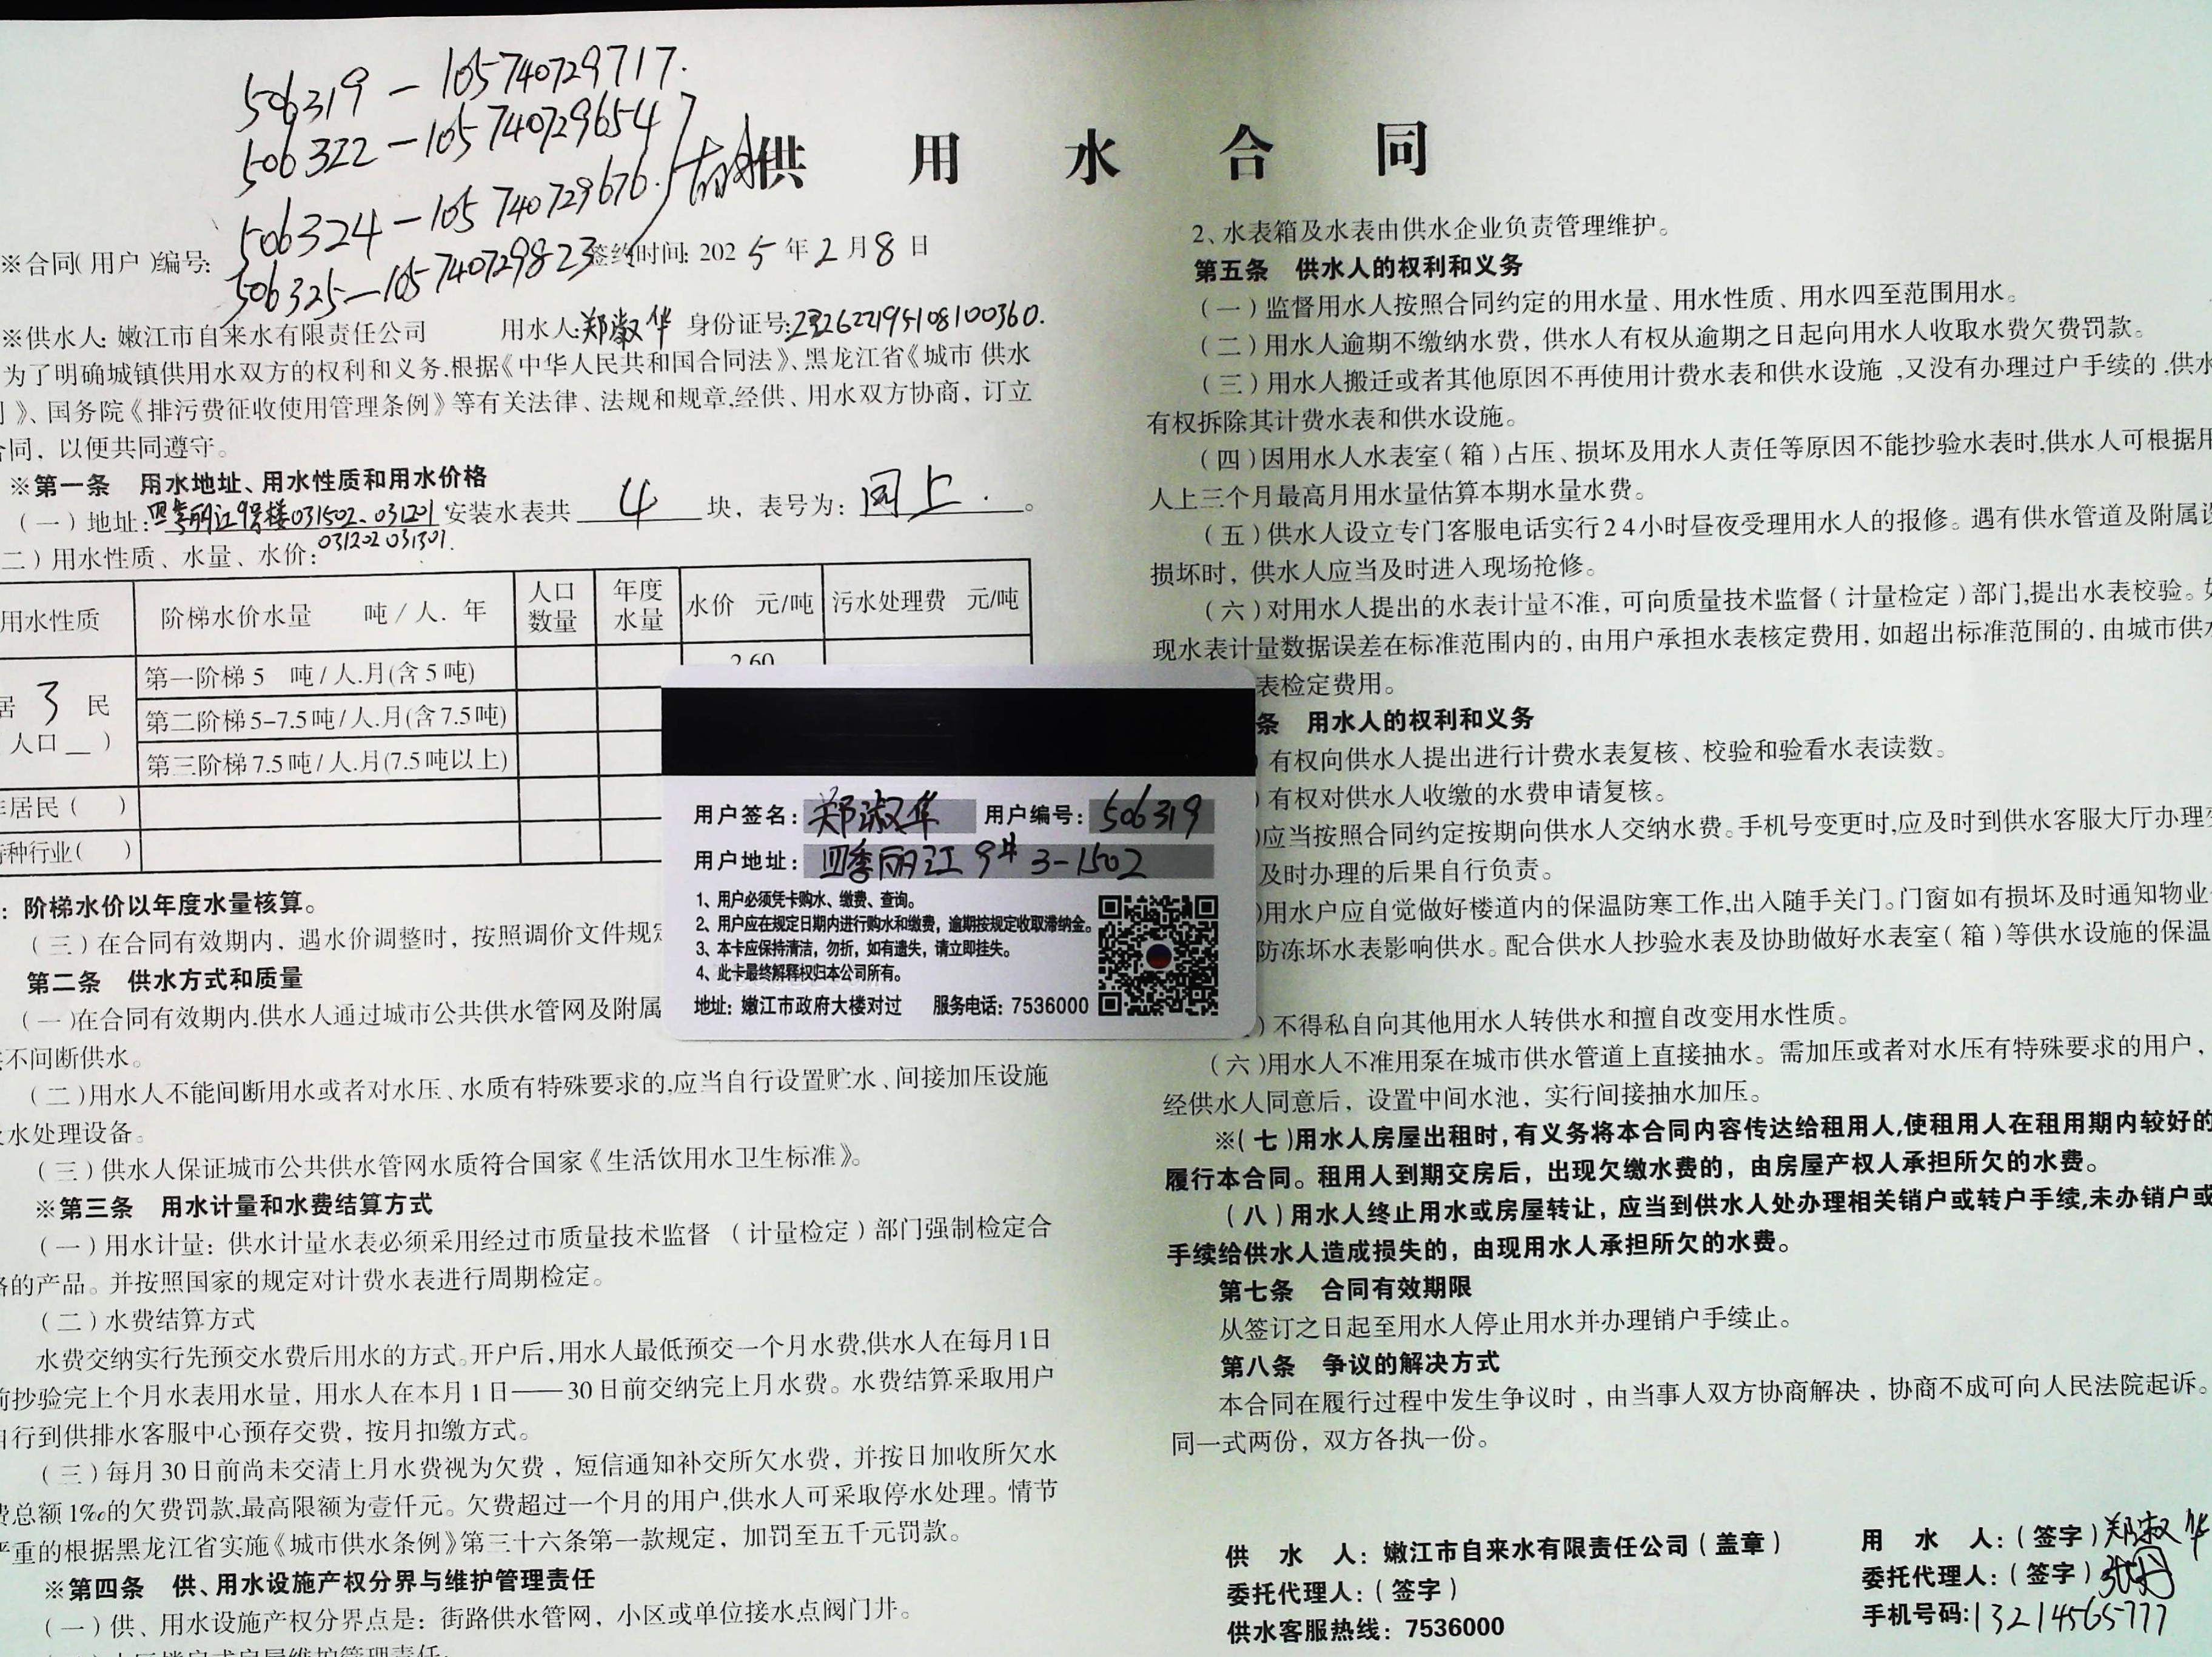 506319-105740729717.
506322-105740729654
506324-105740729676.
506325-105740729823
供用水合同
※合同(用户)编号:
签约时间: 2025年2月8日
※供水人: 嫩江市自来水有限责任公司 用水人:郑淑华 身份证号:232622195108100360.
为了明确城镇供用水双方的权利和义务,根据《中华人民共和国合同法》、黑龙江省《城市 供水
》、国务院《排污费征收使用管理条例》等有关法律、法规和规章,经供、用水双方协商，订立
同，以便共同遵守。
※第一条 用水地址、用水性质和用水价格
(一)地址:四季丽江9号楼031502、031201安装水表共4块，表号为:同上.。
031202 031301.
二)用水性质、水量、水价:
用水性质 阶梯水价水量 吨/人.年 人口数量 年度水量 水价 元/吨 污水处理费 元/吨
居3民
人口__)
第一阶梯5 吨/人.月(含5吨) 2.60
第二阶梯5-7.5吨/人.月(含7.5吨)
第三阶梯7.5吨/人.月(7.5吨以上)
居民( )
种行业( )
: 阶梯水价以年度水量核算。
(三)在合同有效期内，遇水价调整时，按照调价文件规定
第二条 供水方式和质量
(一)在合同有效期内,供水人通过城市公共供水管网及附属
不间断供水。
(二)用水人不能间断用水或者对水压、水质有特殊要求的,应当自行设置贮水、间接加压设施
水处理设备。
(三)供水人保证城市公共供水管网水质符合国家《生活饮用水卫生标准》。
※第三条 用水计量和水费结算方式
(一)用水计量：供水计量水表必须采用经过市质量技术监督 (计量检定)部门强制检定合
格的产品。并按照国家的规定对计费水表进行周期检定。
(二)水费结算方式
水费交纳实行先预交水费后用水的方式。开户后,用水人最低预交一个月水费,供水人在每月1日
前抄验完上个月水表用水量，用水人在本月1日——30日前交纳完上月水费。水费结算采取用户
自行到供排水客服中心预存交费，按月扣缴方式。
(三)每月30日前尚未交清上月水费视为欠费，短信通知补交所欠水费，并按日加收所欠水
费总额1‰的欠费罚款,最高限额为壹仟元。欠费超过一个月的用户,供水人可采取停水处理。情节
严重的根据黑龙江省实施《城市供水条例》第三十六条第一款规定，加罚至五千元罚款。
※第四条 供、用水设施产权分界与维护管理责任
(一)供、用水设施产权分界点是：街路供水管网，小区或单位接水点阀门井。
2、水表箱及水表由供水企业负责管理维护。
第五条 供水人的权利和义务
(一)监督用水人按照合同约定的用水量、用水性质、用水四至范围用水。
(二)用水人逾期不缴纳水费，供水人有权从逾期之日起向用水人收取水费欠费罚款。
(三)用水人搬迁或者其他原因不再使用计费水表和供水设施,又没有办理过户手续的,供水
有权拆除其计费水表和供水设施。
(四)因用水人水表室(箱)占压、损坏及用水人责任等原因不能抄验水表时,供水人可根据用
人上三个月最高月用水量估算本期水量水费。
(五)供水人设立专门客服电话实行24小时昼夜受理用水人的报修。遇有供水管道及附属设
损坏时，供水人应当及时进入现场抢修。
(六)对用水人提出的水表计量不准，可向质量技术监督(计量检定)部门,提出水表校验。如
现水表计量数据误差在标准范围内的，由用户承担水表核定费用，如超出标准范围的，由城市供水
表检定费用。
条 用水人的权利和义务
)有权向供水人提出进行计费水表复核、校验和验看水表读数。
)有权对供水人收缴的水费申请复核。
)应当按照合同约定按期向供水人交纳水费。手机号变更时,应及时到供水客服大厅办理变
及时办理的后果自行负责。
)用水户应自觉做好楼道内的保温防寒工作,出入随手关门。门窗如有损坏及时通知物业
防冻坏水表影响供水。配合供水人抄验水表及协助做好水表室(箱)等供水设施的保温
)不得私自向其他用水人转供水和擅自改变用水性质。
(六)用水人不准用泵在城市供水管道上直接抽水。需加压或者对水压有特殊要求的用户，
经供水人同意后，设置中间水池，实行间接抽水加压。
※(七)用水人房屋出租时,有义务将本合同内容传达给租用人,使租用人在租用期内较好的
履行本合同。租用人到期交房后，出现欠缴水费的，由房屋产权人承担所欠的水费。
(八)用水人终止用水或房屋转让，应当到供水人处办理相关销户或转户手续,未办销户或
手续给供水人造成损失的，由现用水人承担所欠的水费。
第七条 合同有效期限
从签订之日起至用水人停止用水并办理销户手续止。
第八条 争议的解决方式
本合同在履行过程中发生争议时，由当事人双方协商解决，协商不成可向人民法院起诉。
同一式两份，双方各执一份。
供 水 人：嫩江市自来水有限责任公司(盖章)
委托代理人：(签字)
供水客服热线：7536000
用 水 人：(签字)郑淑华
委托代理人：(签字)
手机号码:13214565777
用户签名：郑淑华 用户编号：506319
用户地址：四季丽江9# 3-1502
1、用户必须凭卡购水、缴费、查询。
2、用户应在规定日期内进行购水和缴费，逾期按规定收取滞纳金。
3、本卡应保持清洁，勿折，如有遗失，请立即挂失。
4、此卡最终解释权归本公司所有。
地址：嫩江市政府大楼对过 服务电话：7536000